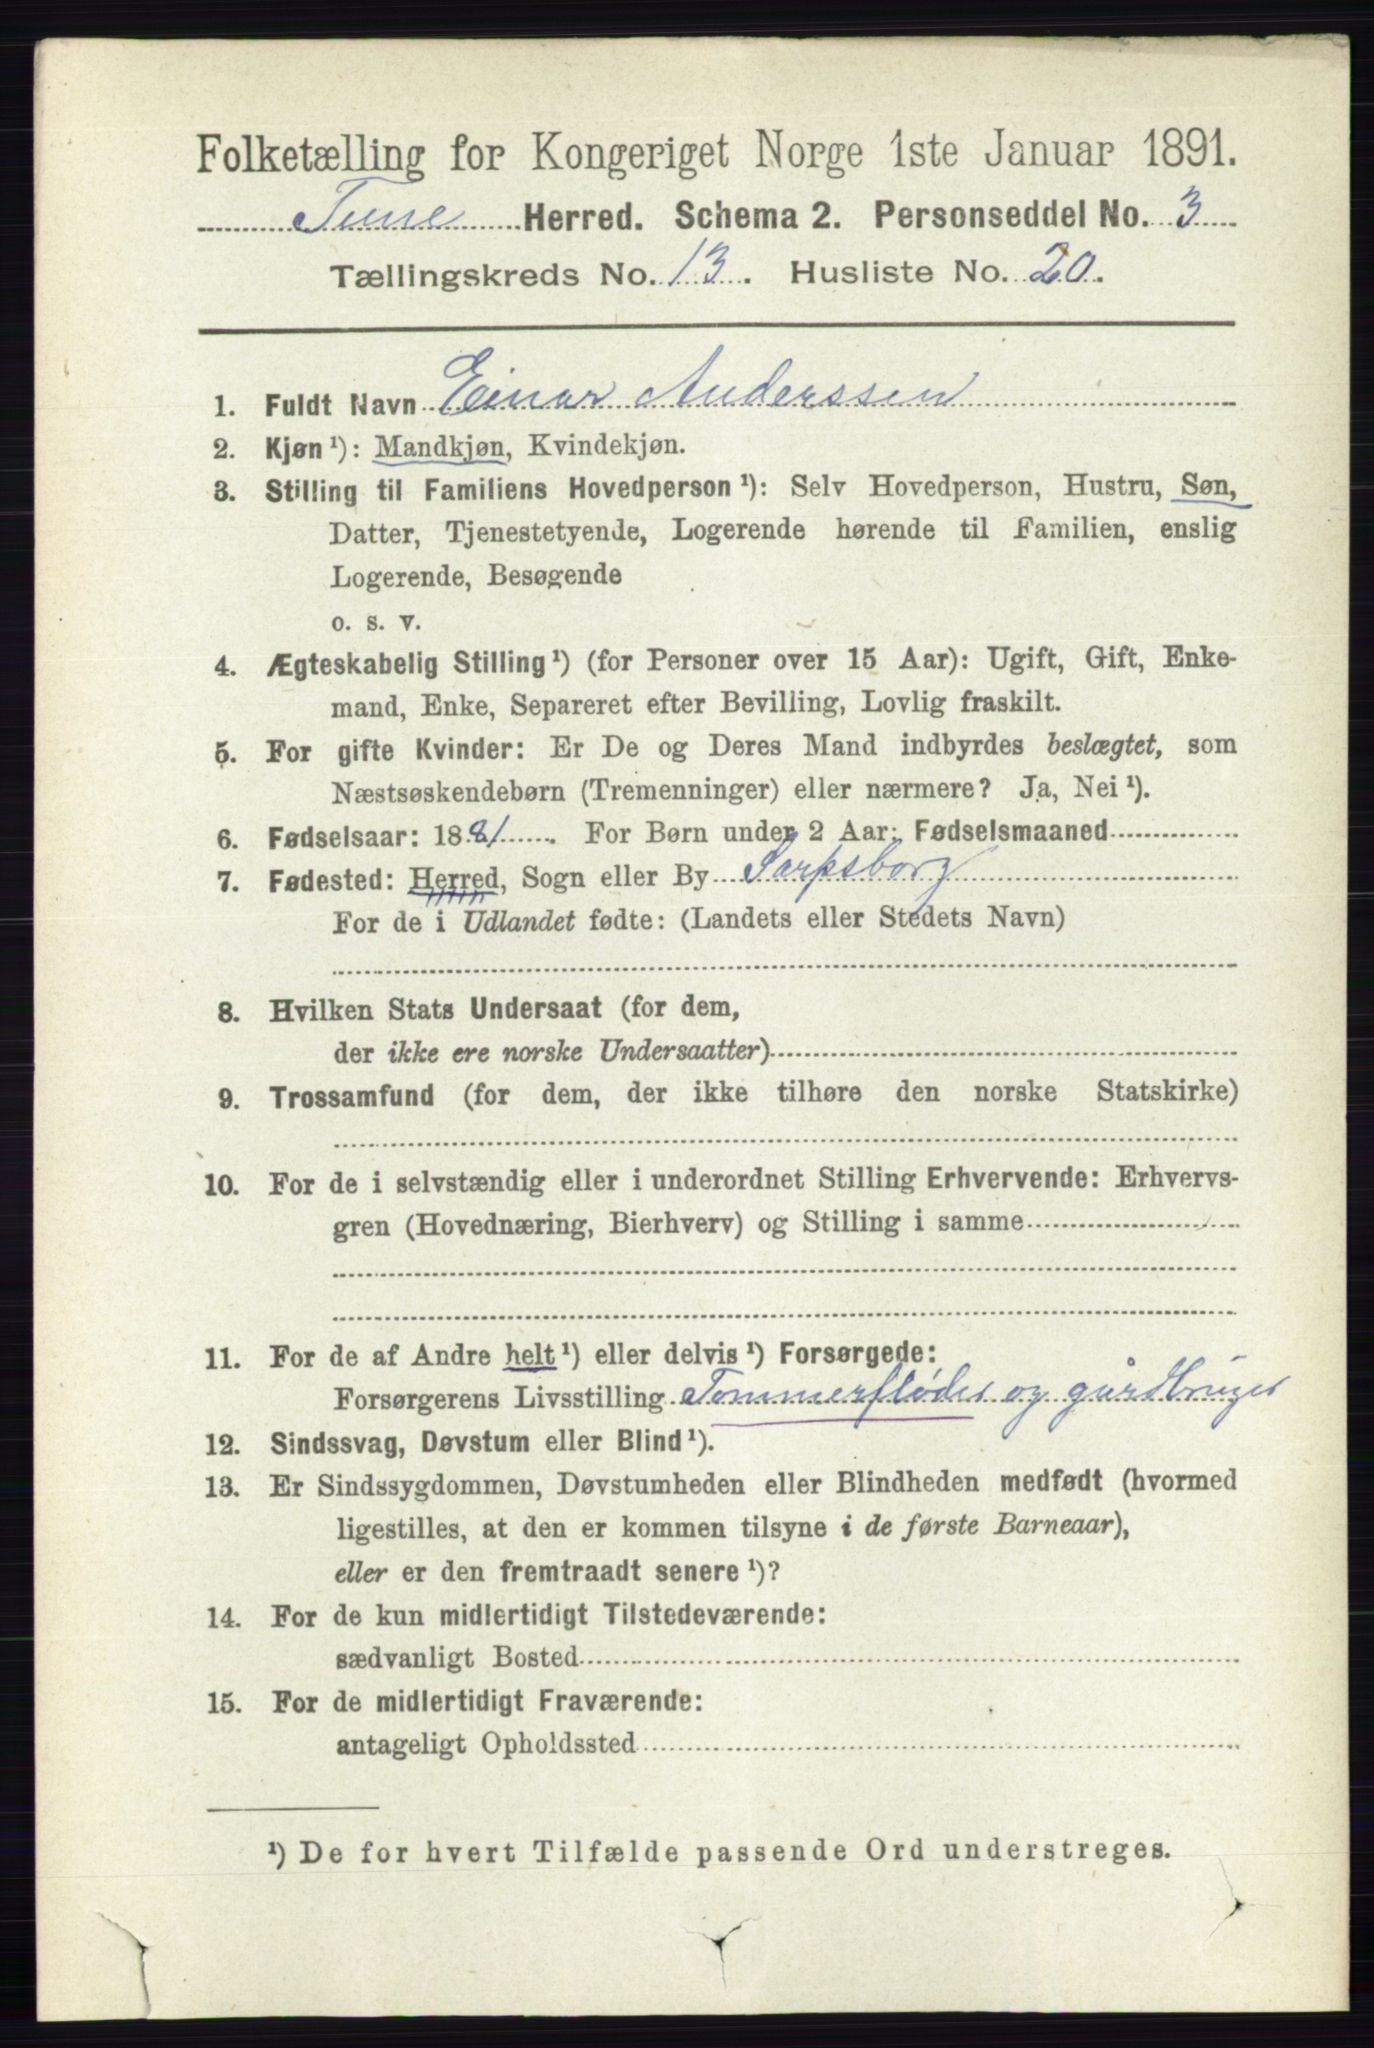 Folketælling for Kongeriget Norge 1ste Januar 1891.
Tune Herred. Schema 2. Personseddel No. 3
Tællingskreds No. 13. Husliste No. 20.
1. Fuldt Navn Einar Anderssen
2. Kjøn¹): Mandkjøn, Kvindekjøn.
3. Stilling til Familiens Hovedperson¹): Selv Hovedperson, Hustru, Søn,
Datter, Tjenestetyende, Logerende hørende til Familien, enslig
Logerende, Besøgende
o. s. v.
4. Ægteskabelig Stilling¹) (for Personer over 15 Aar): Ugift, Gift, Enke-
mand, Enke, Separeret efter Bevilling, Lovlig fraskilt.
5. For gifte Kvinder: Er De og Deres Mand indbyrdes beslægtet, som
Næstsøskendebørn (Tremenninger) eller nærmere? Ja, Nei¹).
6. Fødselsaar: 1881. For Børn under 2 Aar: Fødselsmaaned
7. Fødested: Herred, Sogn eller By Sarpsborg
For de i Udlandet fødte: (Landets eller Stedets Navn)
8. Hvilken Stats Undersaat (for dem,
der ikke ere norske Undersaatter)
9. Trossamfund (for dem, der ikke tilhøre den norske Statskirke)
10. For de i selvstændig eller i underordnet Stilling Erhvervende: Erhvervs-
gren (Hovednæring, Bierhverv) og Stilling i samme
11. For de af Andre helt¹) eller delvis¹) Forsørgede:
Forsørgerens Livsstilling Tommerfløder og gårdbruger
12. Sindssvag, Døvstum eller Blind¹).
13. Er Sindssygdommen, Døvstumheden eller Blindheden medfødt (hvormed
ligestilles, at den er kommen tilsyne i de første Barneaar),
eller er den fremtraadt senere¹)?
14. For de kun midlertidigt Tilstedeværende:
sædvanligt Bosted
15. For de midlertidigt Fraværende:
antageligt Opholdssted
¹) De for hvert Tilfælde passende Ord understreges.